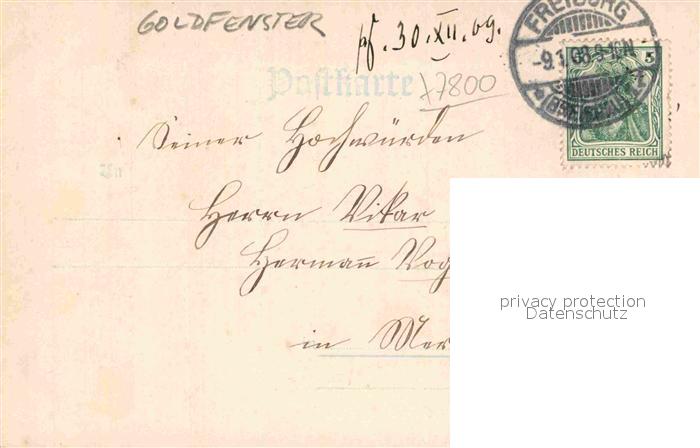 GOLDFENSTER
pf. 30. XII. 09.
FREIBURG
-9.1.08.9-10N
5
DEUTSCHES REICH
Postkarte
77800
Seiner Hochwürden
An
Herrn Vikar
Hermann Vog
in Mer
privacy protection
Datenschutz